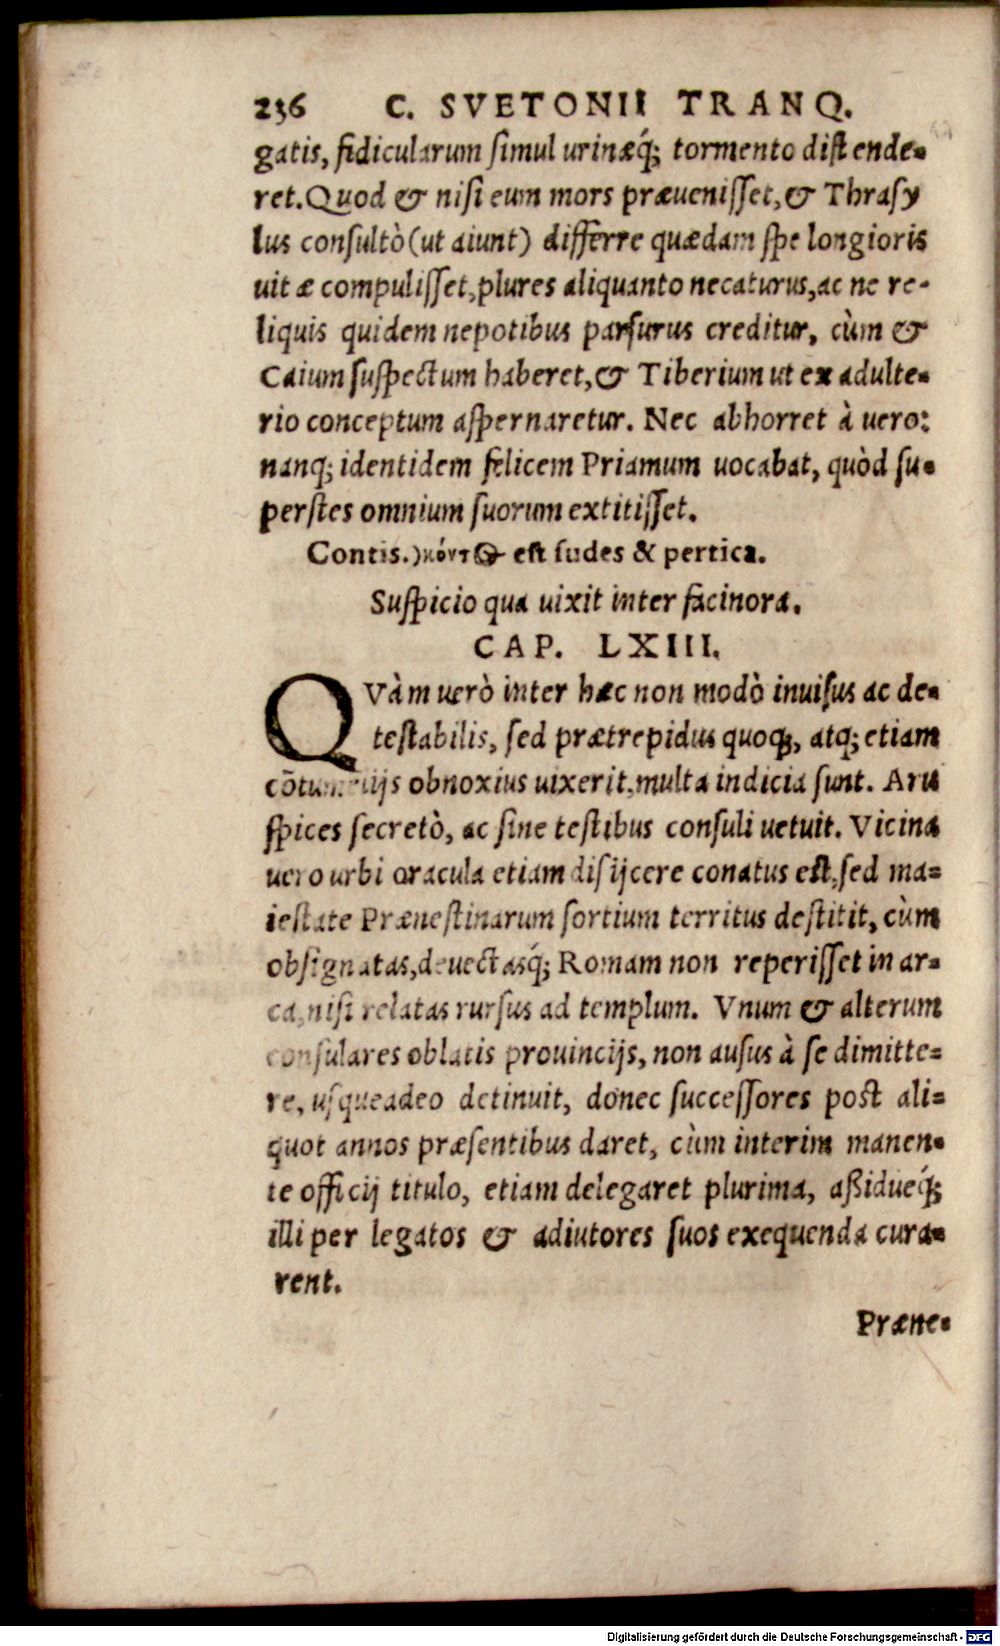 236 C. SVETONII TRANQ.
gatis, fidicularum simul urinæq́; tormento distende-
ret. Quod & nisi eum mors præuenisset, & Thrasy
lus consultò (ut aiunt) differre quædam spe longioris
uitæ compulisset, plures aliquanto necaturus, ac ne re-
liquis quidem nepotibus parsurus creditur, cùm &
Caium suspectum haberet, & Tiberium ut ex adulte-
rio conceptum aspernaretur. Nec abhorret à uero:
nanq; identidem felicem Priamum uocabat, quòd su-
perstes omnium suorum extitisset.
Contis.) κόντος est sudes & pertica.
Suspicio qua uixit inter facinora.
CAP. LXIII.
QVàm uerò inter hæc non modò inuisus ac de-
testabilis, sed prætrepidus quoq;, atq; etiam
cõtumelijs obnoxius uixerit, multa indicia sunt. Aru
spices secretò, ac sine testibus consuli uetuit. Vicina
uero urbi oracula etiam disijcere conatus est, sed ma-
iestate Prænestinarum sortium territus destitit, cùm
obsignatas, deuectasq́; Romam non reperisset in ar-
ca, nisi relatas rursus ad templum. Vnum & alterum
consulares oblatis prouincijs, non ausus à se dimitte-
re, usqueadeo detinuit, donec successores post ali-
quot annos præsentibus daret, cùm interim manen-
te officij titulo, etiam delegaret plurima, aßidueq́;
illi per legatos & adiutores suos exequenda cura-
rent.
Præne-
Digitalisierung gefördert durch die Deutsche Forschungsgemeinschaft - DFG